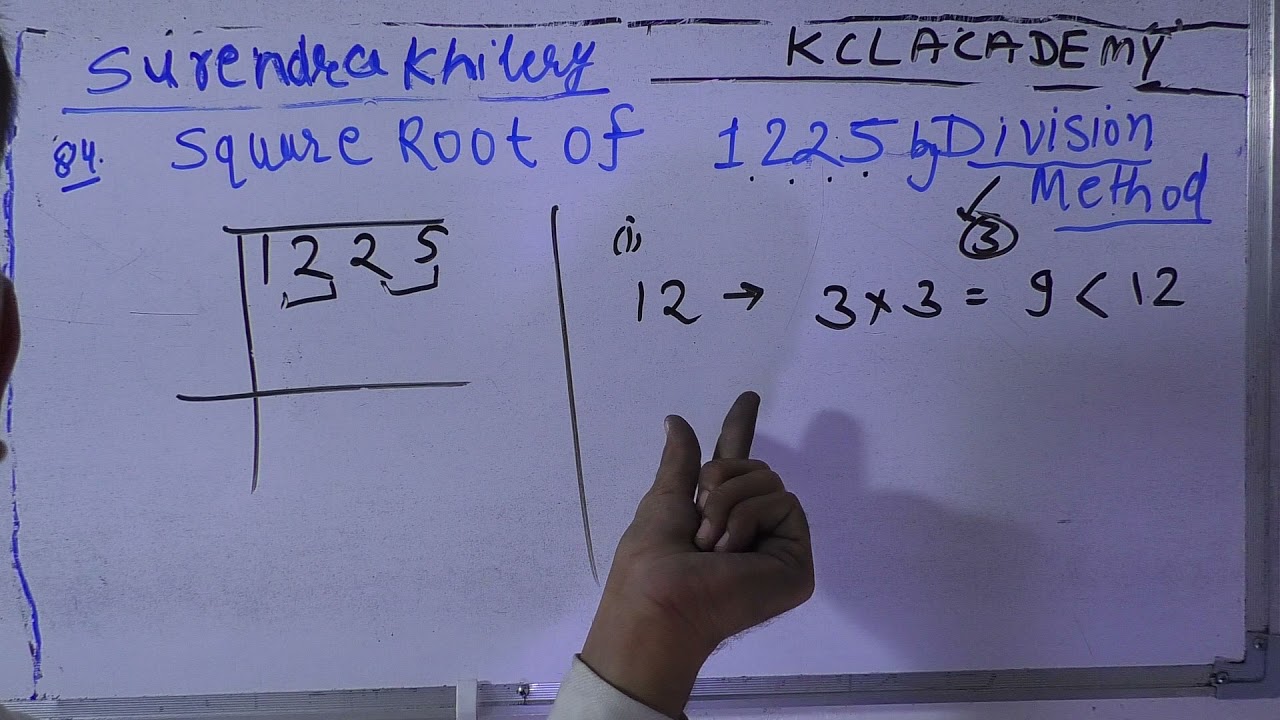 Surendra Khilery
KCL ACADEMY
Q4. Square Root of 1225 by Division
Method
1225
(i)
3
12 → 3 × 3 = 9 < 12